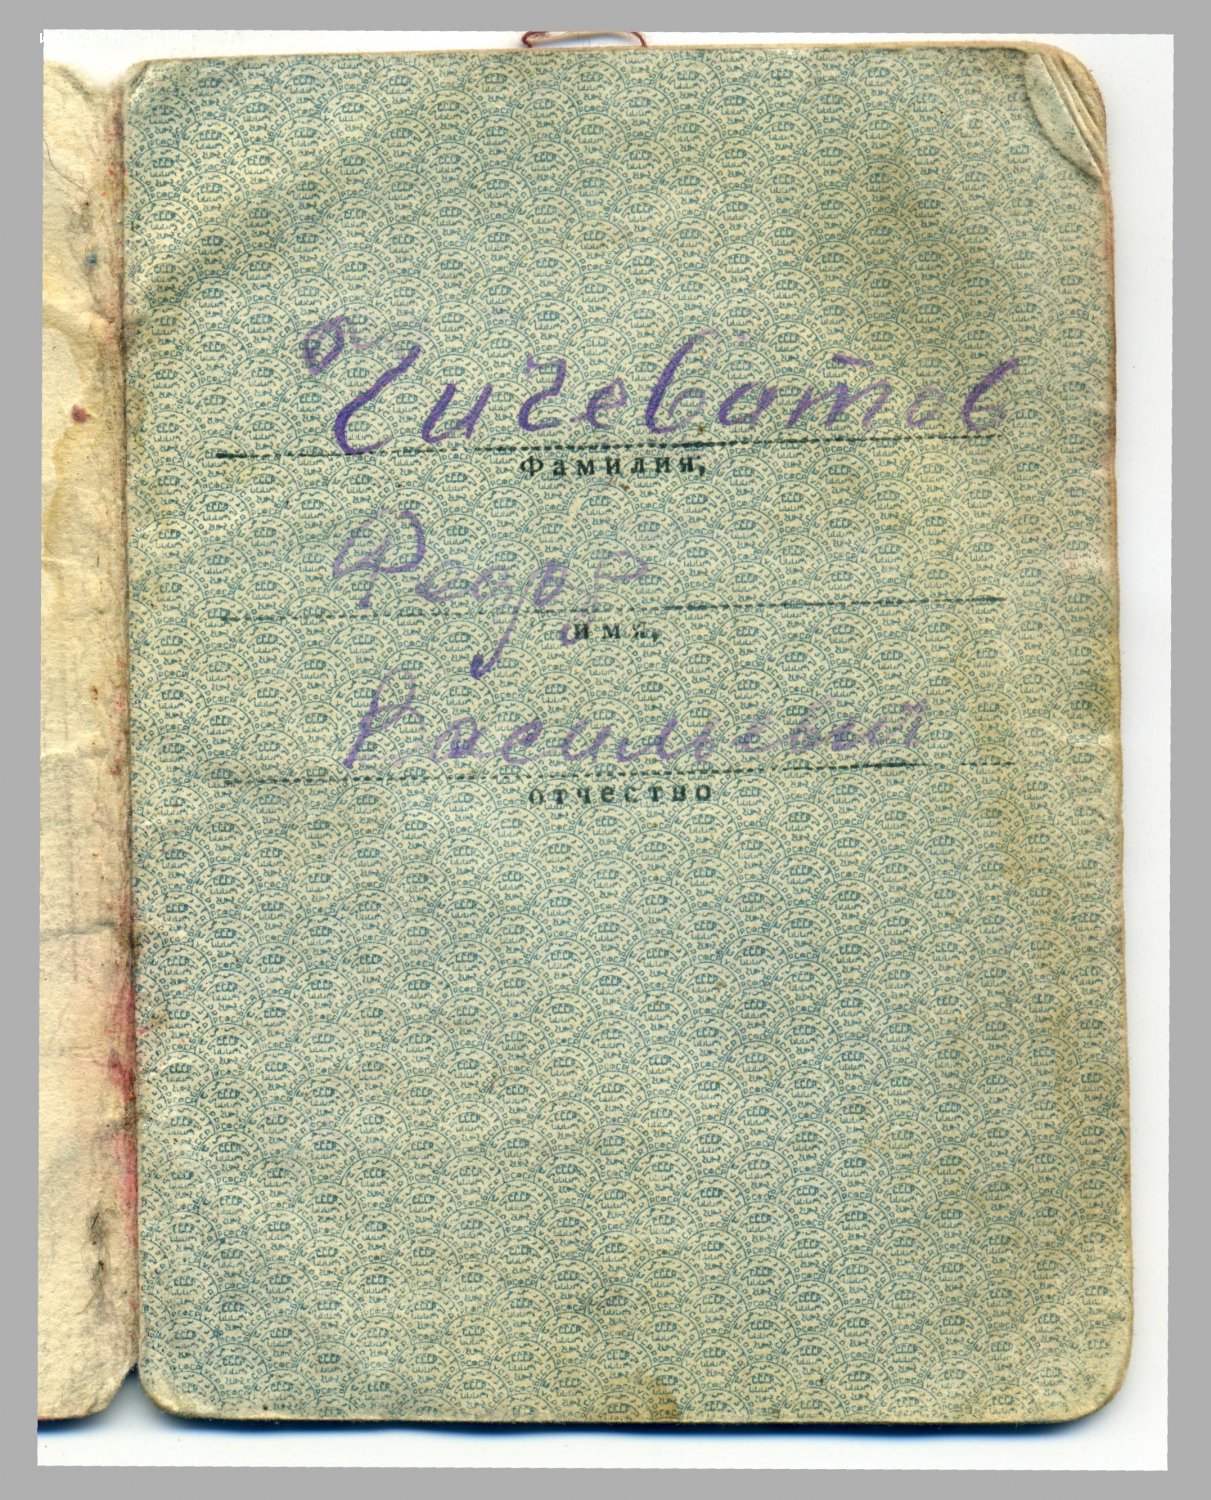 Чичеватов
Фамилия,
Федор
имя,
Васильевич
отчество